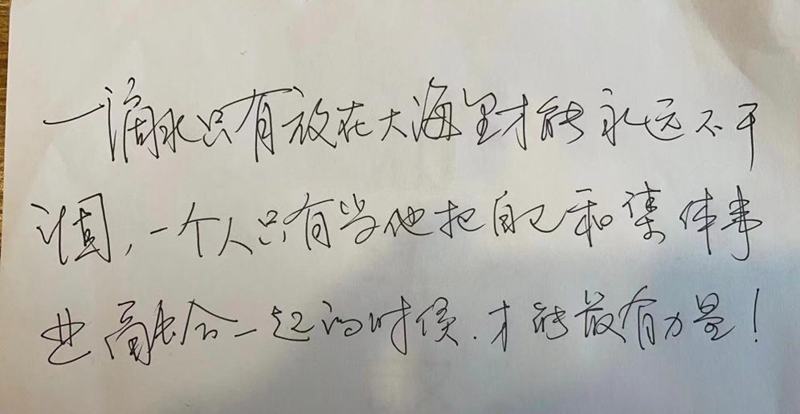 一滴水只有放在大海里才能永远不干
涸，一个人只有当他把自己和集体事
业融合一起的时候.才能最有力量！